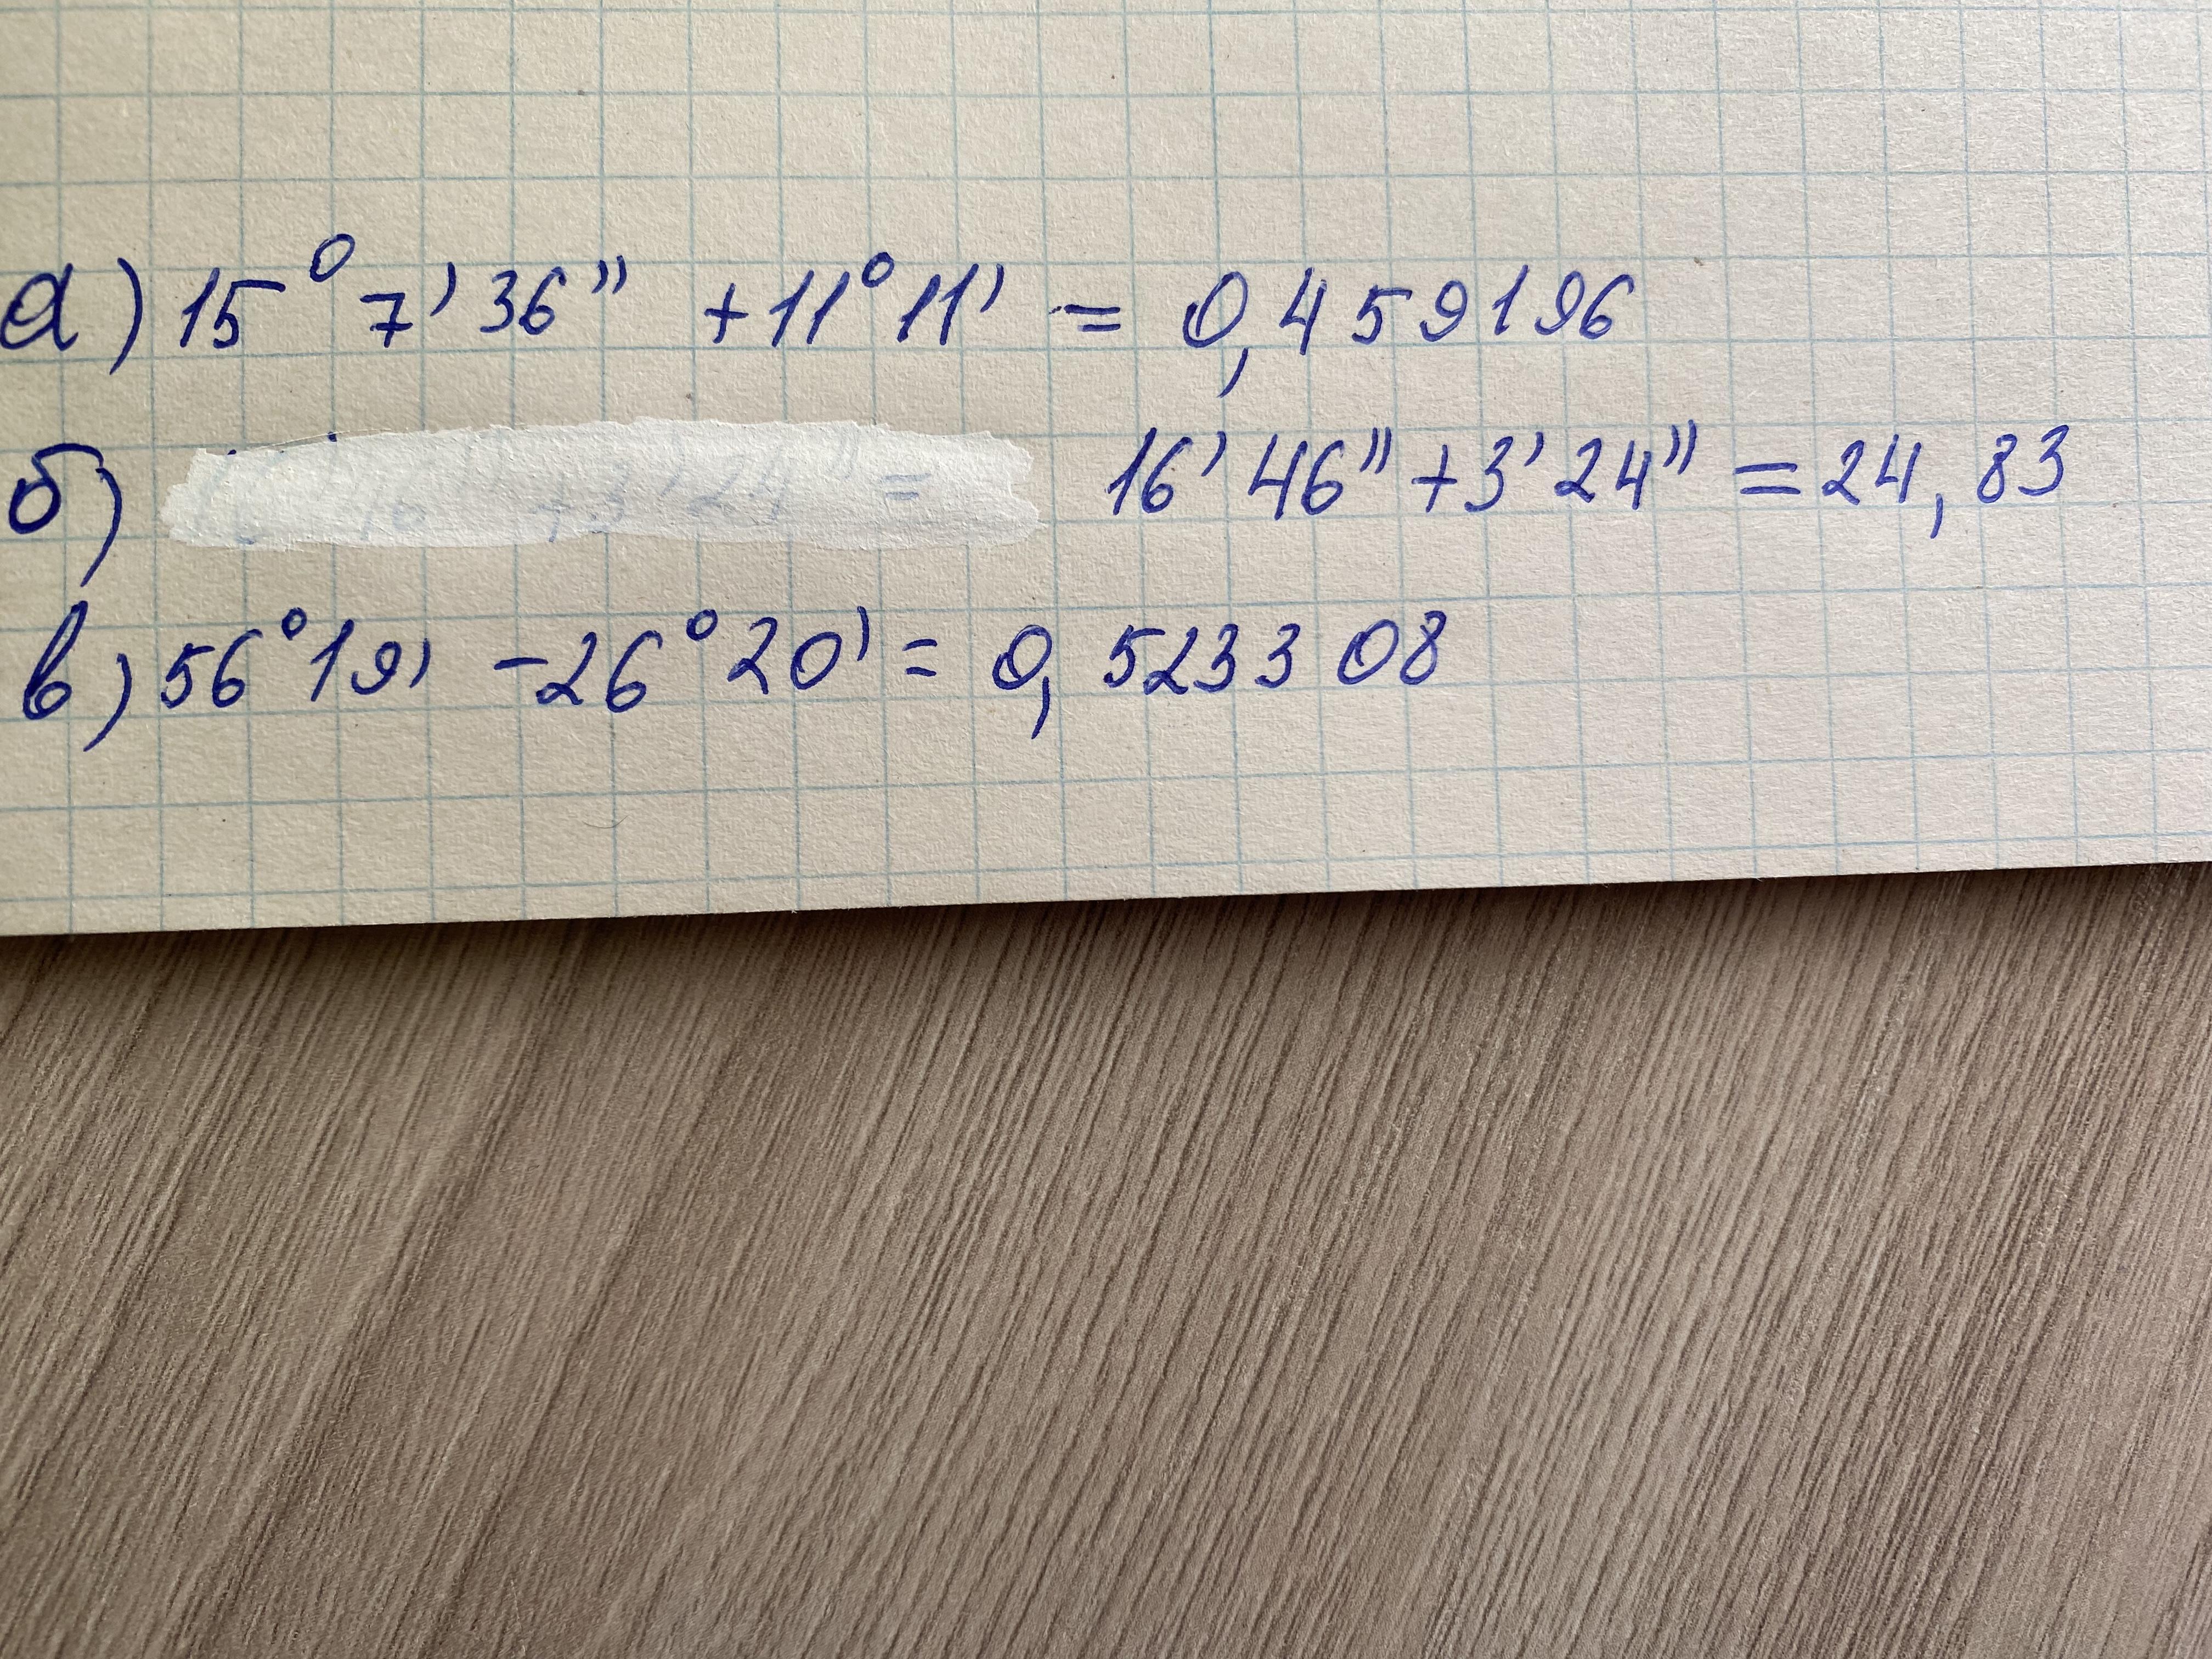 а) 15° 7' 36" + 11° 11' = 0,459196
б) 16' 46" + 3' 24" = 24,83
в) 56° 19' - 26° 20' = 0,523308